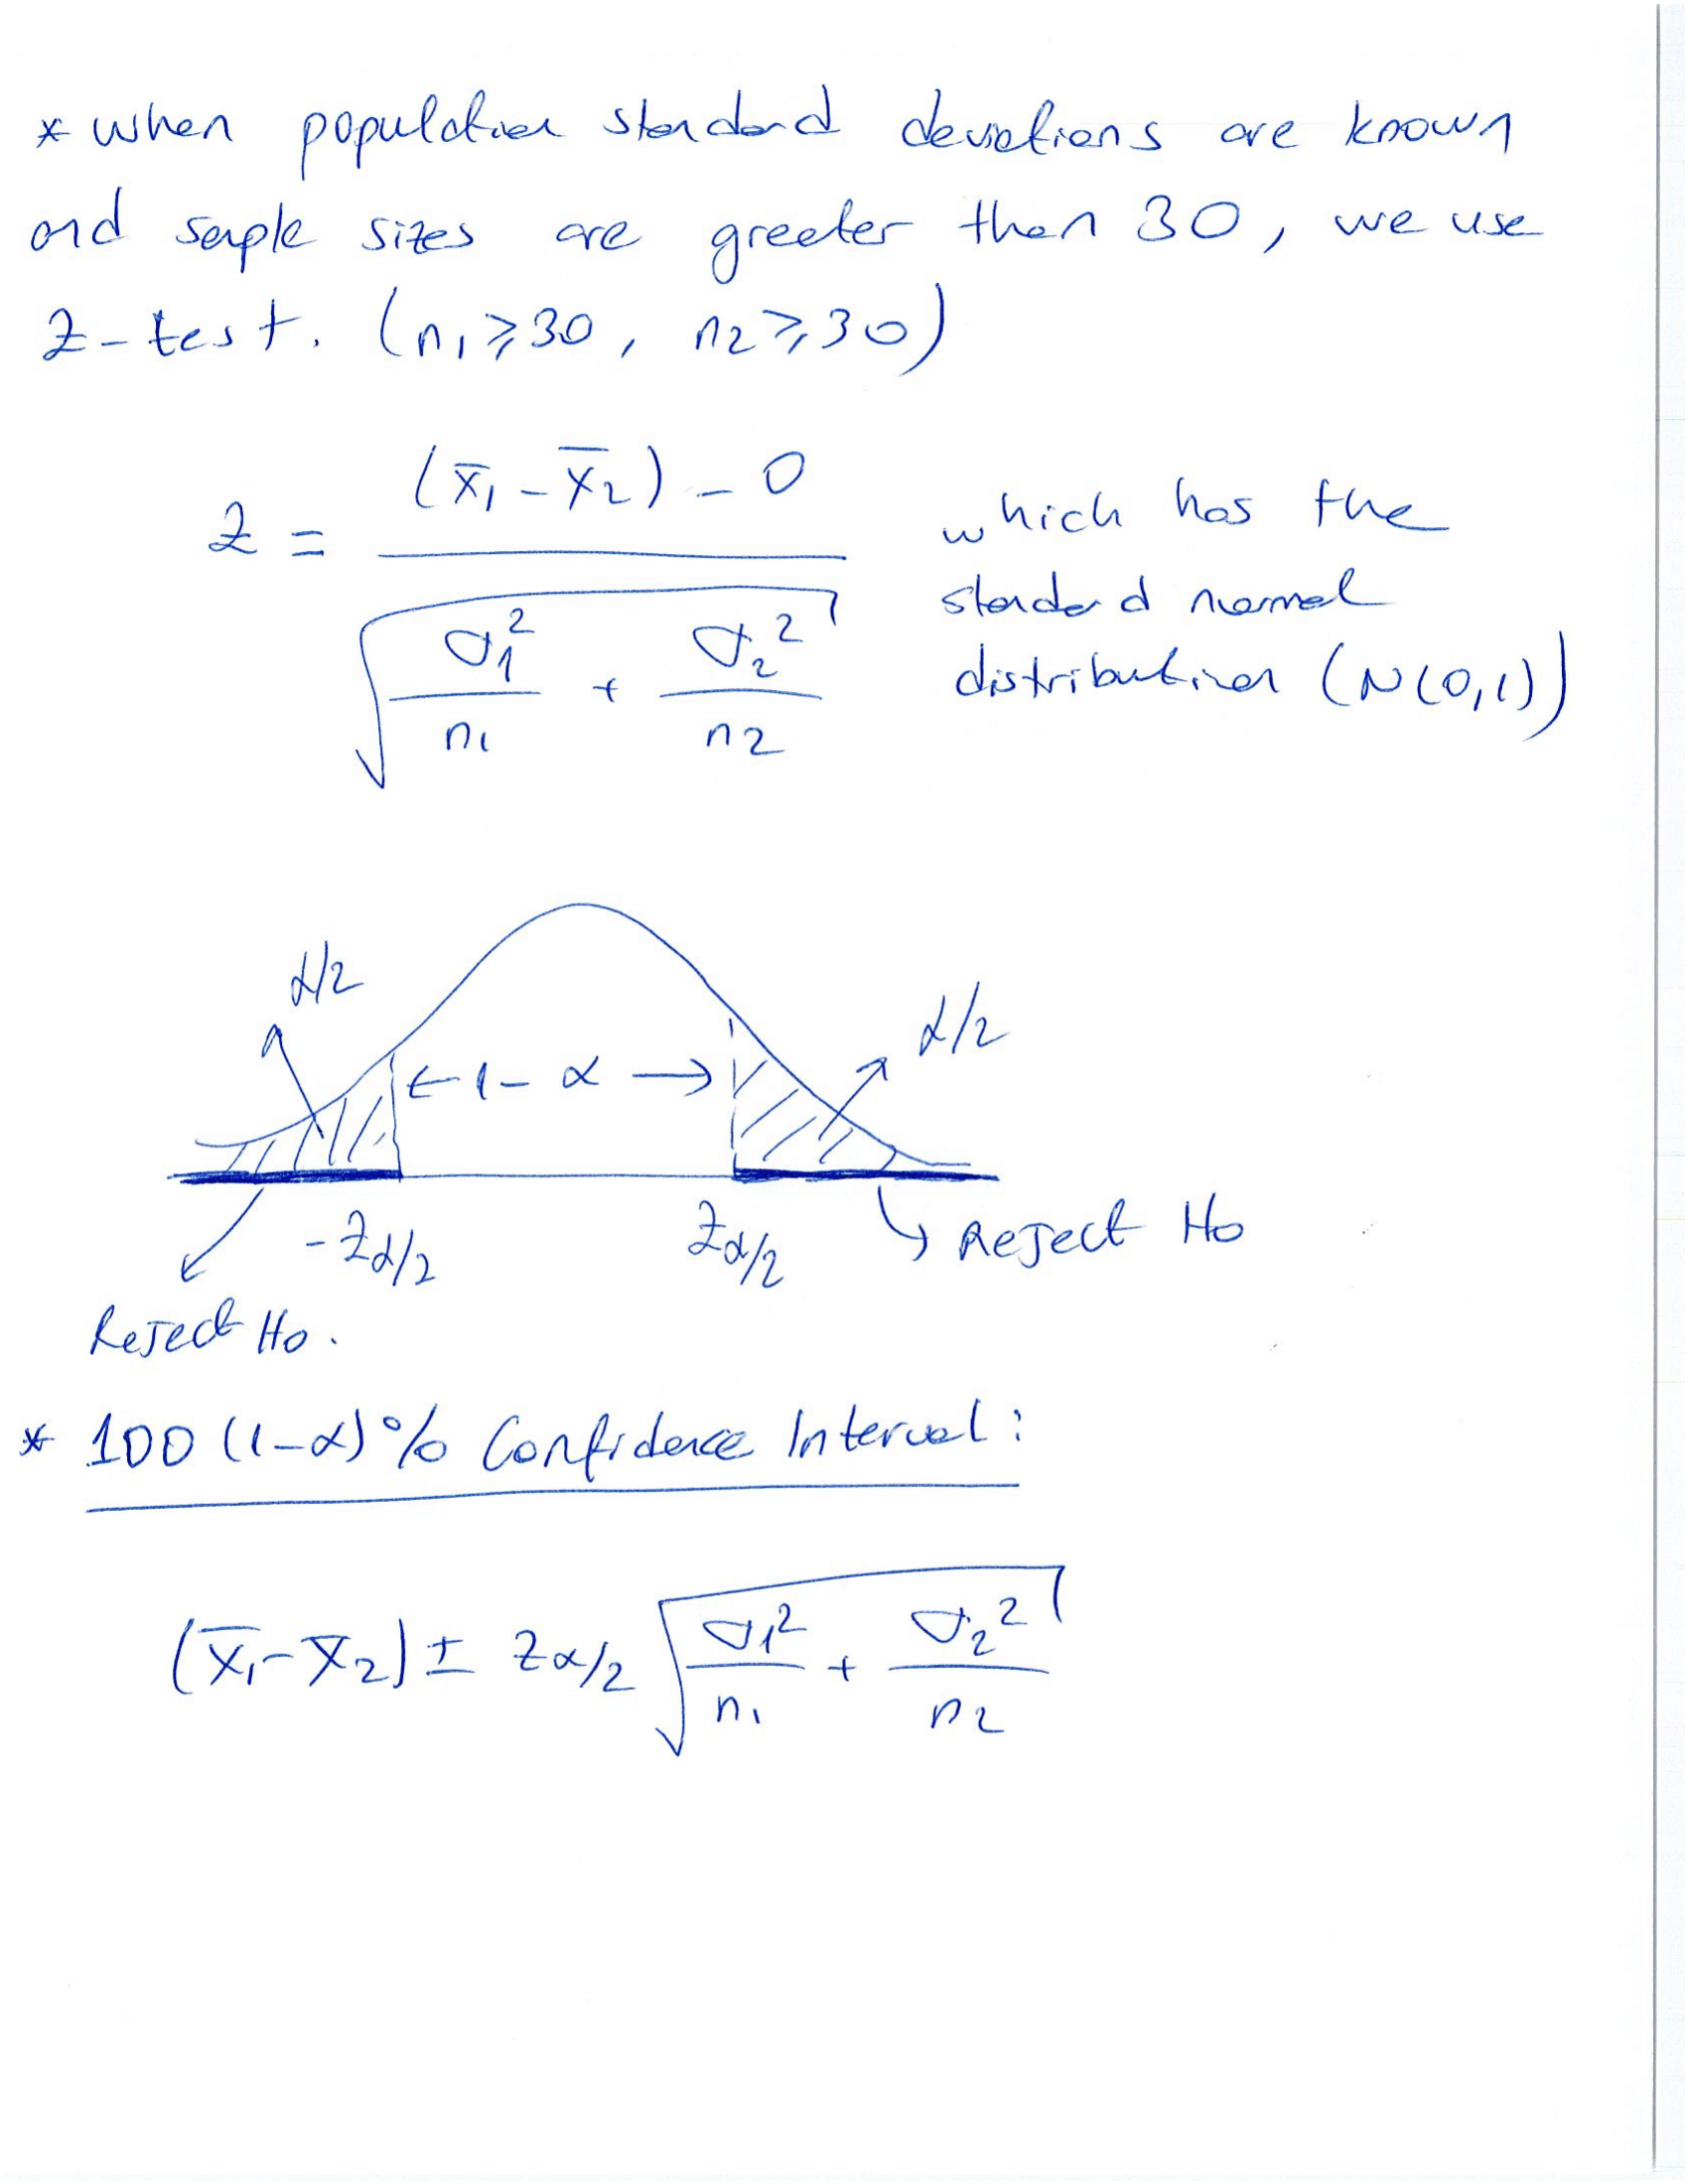 * when population standard deviations are known
and sample sizes are greater than 30, we use
Z-test. (n₁ ≥ 30, n₂ ≥ 30)
Z = ((x̄₁ - x̄₂) - 0) / √(σ₁²/n₁ + σ₂²/n₂)
which has the
standard normal
distribution (N(0,1))
α/2
α/2
← 1 - α →
-Zα/2
Zα/2
Reject H₀
Reject H₀.
* 100 (1-α)% Confidence Interval:
(x̄₁ - x̄₂) ± Zα/2 √(σ₁²/n₁ + σ₂²/n₂)